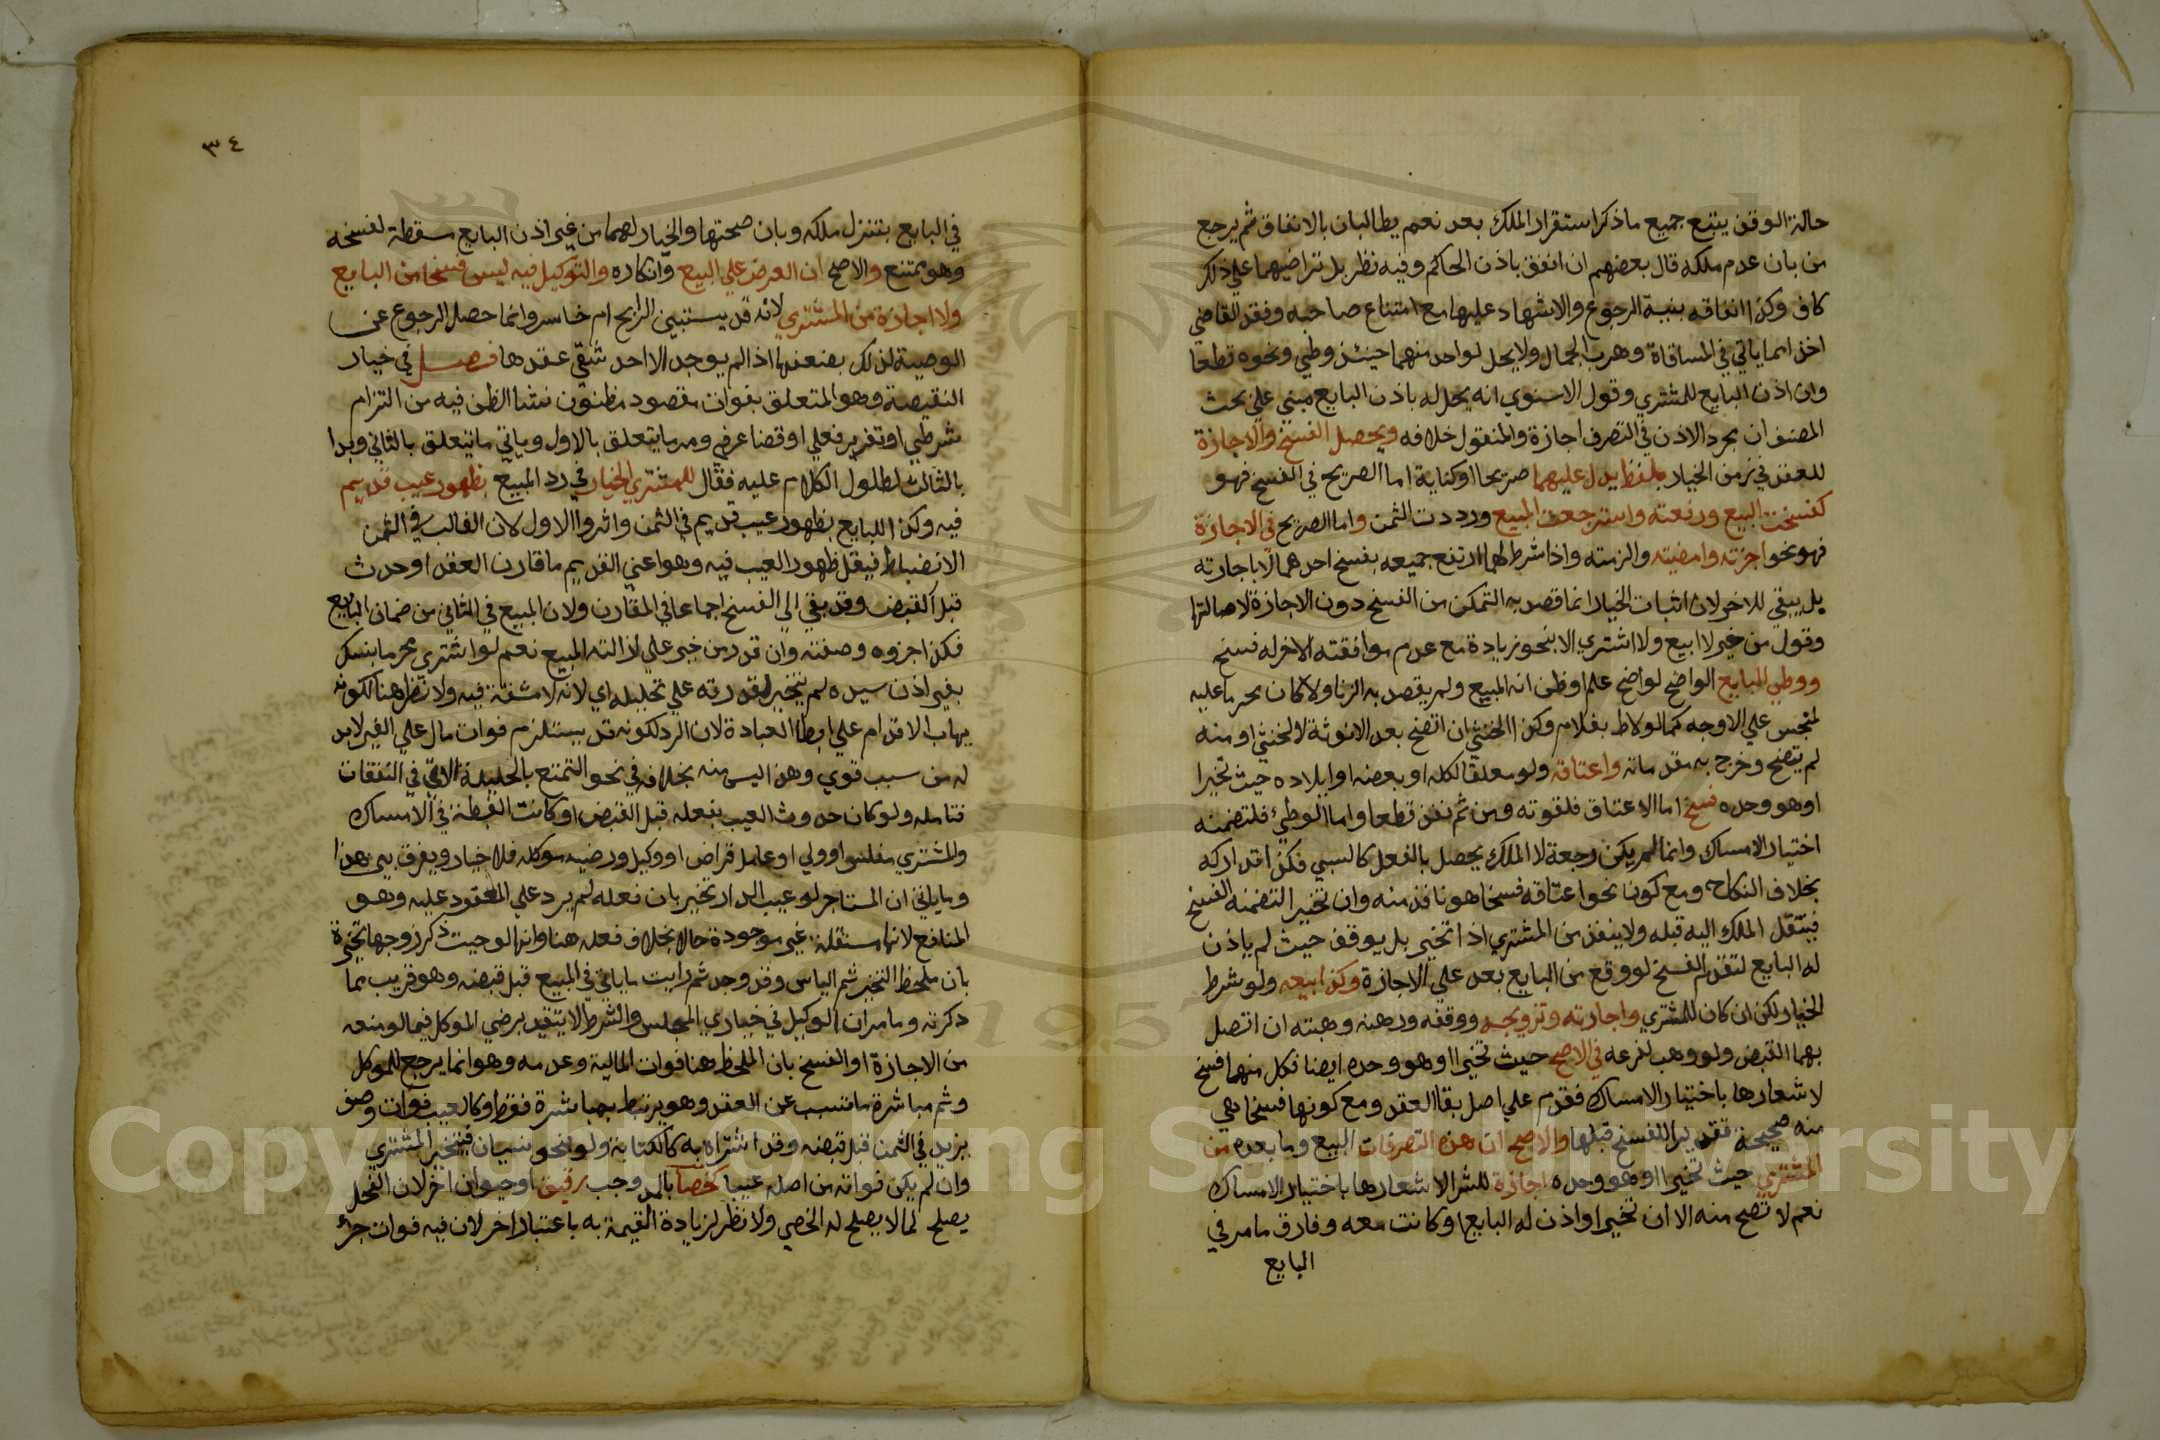 حالة الوقف يتبع جميع ما ذكر استقرار الملك بعد نعم يطالبان بالانفاق ثم يرجع
من بان عدم ملكه قال بعضهم ان انفق باذن الحاكم وفيه نظر بل تراضيهما علي ذلك
كاف وكذا انفاقه بنية الرجوع والاشهاد عليها مع امتناع صاحبه وفقد القاضي
اخذا مما ياتي في المساقاة وهرب الجمال ولا يحل لواحد منهما حينئذ وطي ونحوه قطعا
وان اذن البايع للمشتري وقول الاسنوي انه يحل له باذن البايع مبني علي بحث
المصنف ان مجرد الاذن في التصرف اجازة والمنقول خلافه ويحصل الفسخ والاجازة
للعقد في زمن الخيار بلفظ يدل عليهما صريحا او كناية اما الصريح في الفسخ فهو
كفسخت البيع ورفعته واسترجعت المبيع ورددت الثمن واما الصريح في الاجازة
فهو نحو اجزته وامضيته والزمته واذا شرط لهما ارتفع جميعه بفسخ احدهما لا باجازته
بل يبقي للاخر لان اثبات الخيار انما قصد به التمكن من الفسخ دون الاجازة لاصالتها
وقول من خير لا ابيع ولا اشتري الا بنحو زيادة مع عدم موافقته الاخر له فسخ
ووطي البايع الواضح لواضح علم او ظن انه المبيع ولم يقصد به الزنا ولا كان محرما عليه
لتمجس علي الاوجه كما لو لاط بغلام وكذا الخنثي ان اتضح بعد الانوثة لا لخنثي او منه
لم يتضح وخرج به مقدماته واعتاقه ولو معلقا لكله او بعضه او ايلاده حيث تخيرا
او هو وحده فسخ اما الاعتاق فلقوته ومن ثم نفذ قطعا واما الوطيء فلتضمنه
اختيار الامساك وانما لم يكن رجعة لا الملك يحصل بالفعل كالسبي فكذا تداركه
بخلاف النكاح ومع كون نحو اعتاقه فسخا هو نافذ منه وان تخيرا لتضمنه الفسخ
فينتقل الملك اليه قبله ولا ينفذ من المشتري اذا تخير بل يوقف حيث لم ياذن
له البايع لتقدم الفسخ لو وقع من البايع بعد علي الاجازة وكذا بيعه ولو شرط
الخيار لكن ان كان للمشتري واجارته وتزويجه ووقفه ورهنه وهبته ان اتصل
بهما القبض ولو وهب لفرعه في الاصح حيث تخيرا او هو وحده ايضا فكل منهما فسخ
لاشعارها باختيار الامساك فقدم علي اصل بقا العقد ومع كونها فسخا هي
منه صحيحة تقديرا للفسخ قبلها والاصح ان هذه التصرفات البيع وما بعده من
المشتري حيث تخيرا او هو وحده اجازة للشرا لاشعارها باختيار الامساك
نعم لا تصح منه الا ان تخير او اذن له البايع او كانت معه وفارق ما مر في
البايع
٣٤
في البايع بتنزل ملكه وبان صحتها والخيار لهما من غير اذن البايع مسقطة لفسخه
وهو ممتنع والاصح ان العرض علي البيع وانكاره والتوكيل فيه ليس فسخا من البايع
ولا اجازة من المشتري لانه قد يستبين الرابح ام خاسر وانما حصل الرجوع عن
الوصية لذلك بضعفها اذ لم يوجد الا احد شقي عقدها فصل في خيار
النقيصة وهو المتعلق بفوات مقصود مظنون نشا الظن فيه من التزام
شرطي او تغرير فعلي او قضا عرفي ومر ما يتعلق بالاول وياتي ما يتعلق بالثاني وبدا
بالثالث لطول الكلام عليه فقال للمشتري الخيار في رد المبيع بظهور عيب قديم
فيه وكذا للبايع بظهور عيب قديم في الثمن واثروا الاول لان الغالب في الثمن
الانضباط فيقل ظهور العيب فيه وهو اعني القديم ما قارن العقد او حدث
قبل القبض وقد بقي الي الفسخ اجماعا في المقارن ولان المبيع في الثاني من ضمان البايع
فكذا جزوه وصفته وان قدر من خير علي ازالته المبيع نعم لو اشتري محرما بنسك
بغير اذن سيده لم يتخير لقدرته علي تحليله اي لانه لا مشقة فيه ولا نظر هنا لكونه
يهاب الاقدام علي ابطا العبادة لان الرد لكونه قد يستلزم فوات مال علي الغير لابد
له من سبب قوي وهذا ليس منه بخلافه في نحو التمتع بالحليلة الاتي في النفقات
فتامله ولو كان حدوث العيب بفعله قبل القبض او كانت الغبطة في الامساك
والمشتري مفلس او ولي او عامل قراض او وكيل ورضيه موكله فلا خيار ويفرق بين هذا
وما ياتي ان المستاجر لو عيب الدار تخير بان فعله لم يرد علي المعقود عليه وهو
المنافع لانها مستقلة غير موجودة حالا بخلاف فعله هنا وانها لو حبت ذكر زوجها تخيرة
بان ملحظ التخير ثم الياس وقد وجد ثم رايت ما ياتي في المبيع قبل قبضه وهو قريب مما
ذكرته وما مر ان الوكيل في خياري المجلس والشرط لا يتقيد برضي الموكل فيما لو منعه
من الاجازة او الفسخ بان الملحظ هنا فوات المالية وعدمه وهو انما يرجع للموكل
وثم مباشرة ما تسبب عن العقد وهو يرتبط بمباشرة فقط وكالعيب فوات وصف
يزيد في الثمن قبل قبضه وقد اشتراه به كالكتابة ولو بنحو نسيان فيتخير المشتري
وان لم يكن فواته من اصله عيبا كخصا بالمد وجب رقيق او حيوان اخر لان الفحل
يصلح لما لا يصلح له الخصي ولا نظر لزيادة القيمة به باعتبار اخر لان فيه فوات جزء
Copyright © King Saud University
1957